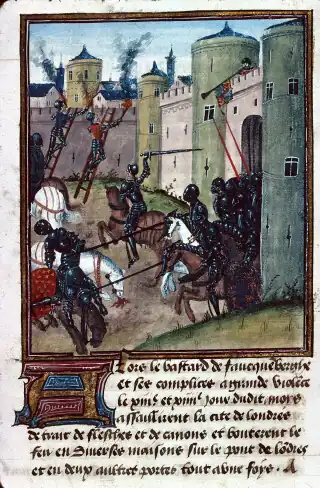 Alors le bastard de faucqueberghe
et ses complices a grande violece
le et jour dudit moys
assaillirent la cite de londres
de trait de flesches et de canons et bouterent le
feu en diverses maisons sur le pont de lodres
et en deux aultres portes tout a une foys . A